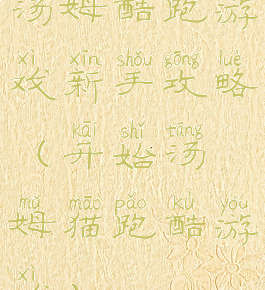 汤姆酷跑游
xì xīn shǒu gōng lüè
戏新手攻略
kāi shǐ tāng
(开始汤
mǔ māo pǎo kù yóu
姆猫跑酷游
xì